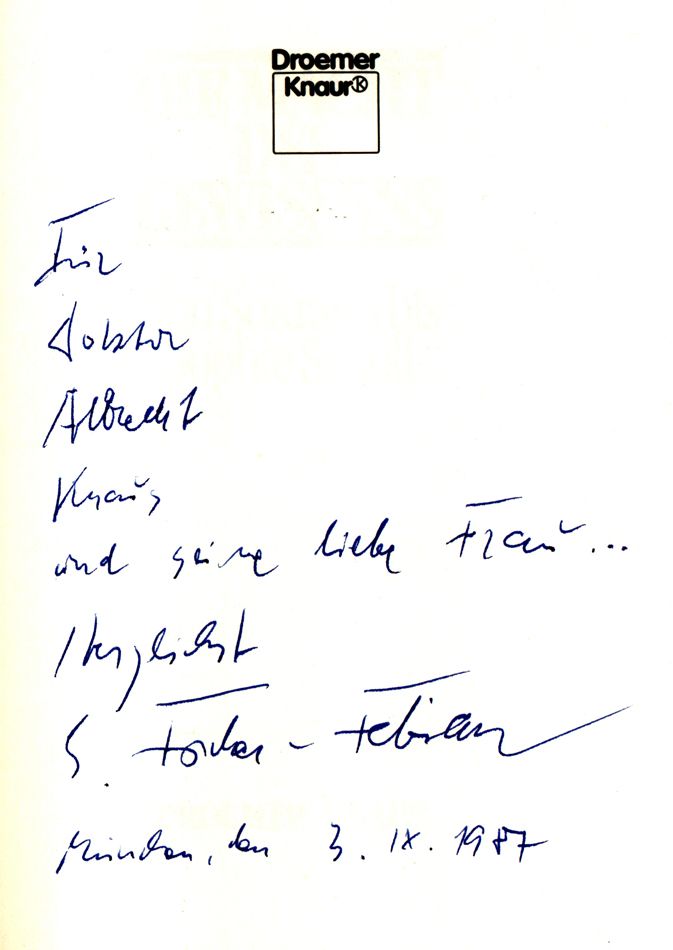 Droemer
Knaur®
Für
Doktor
Albrecht
Knaus
und seine liebe Frau...
Herzlichst
S. Fischer-Fabian
München, den 3. IX. 1987